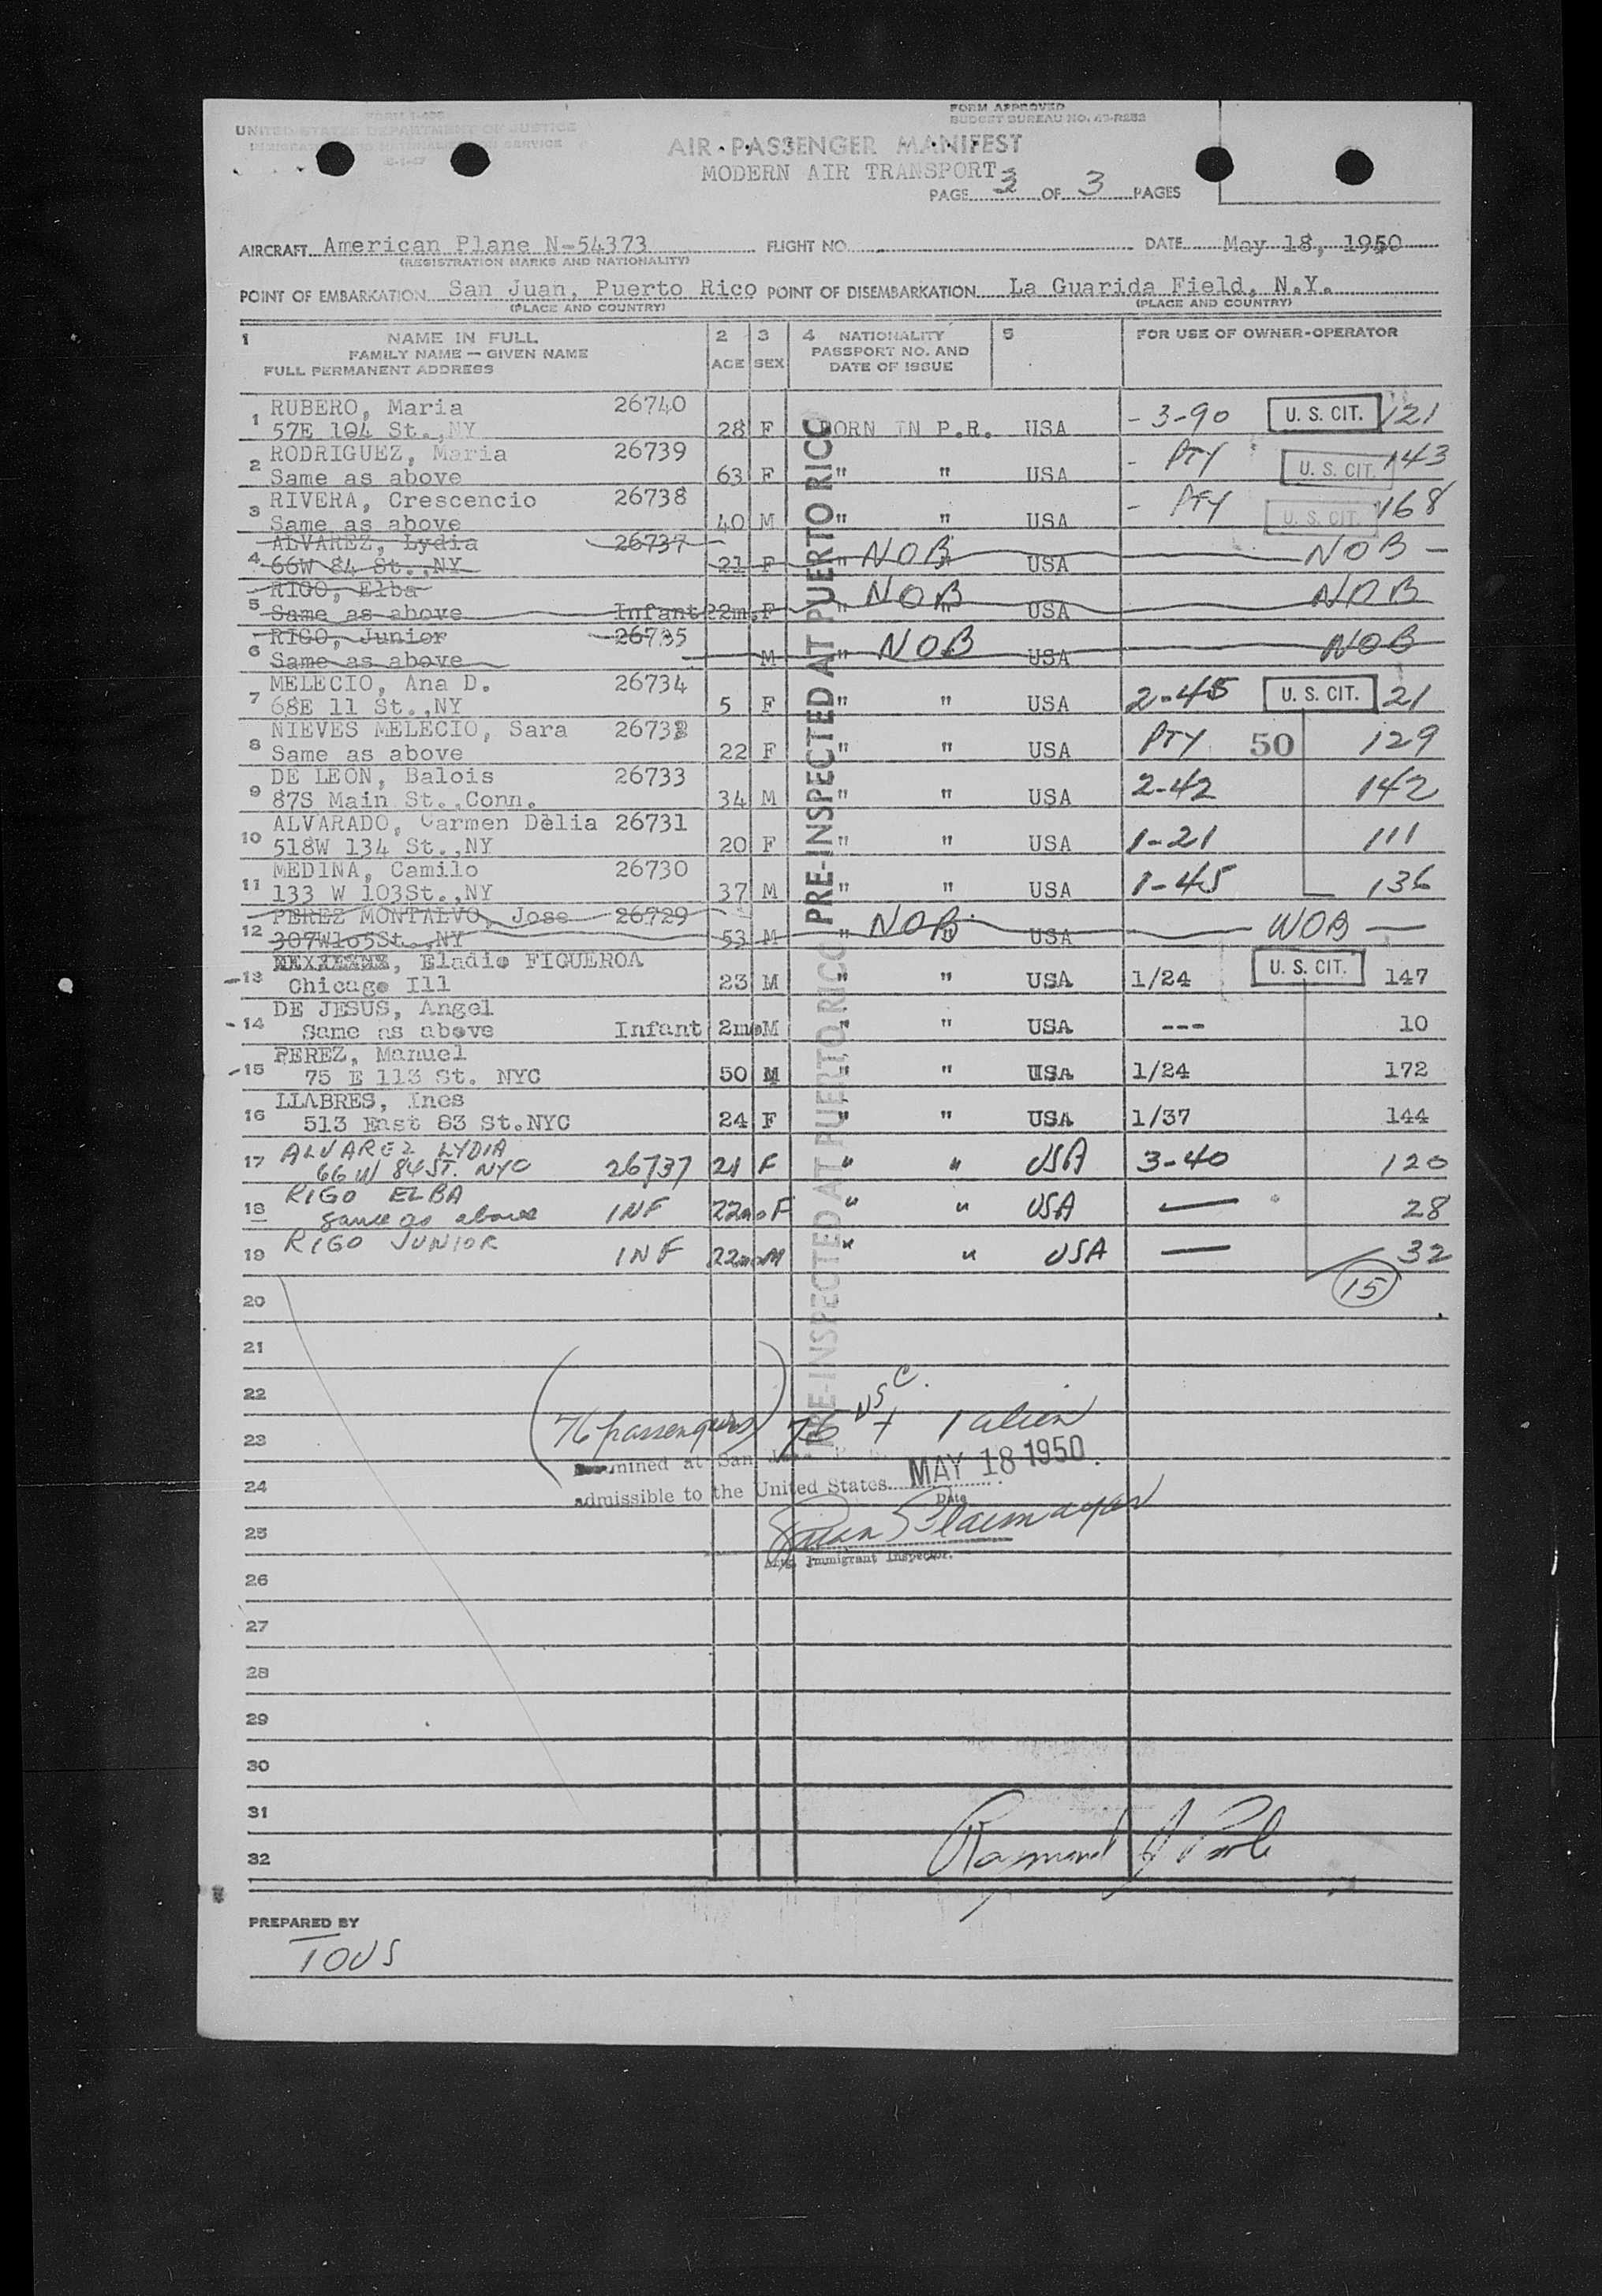 FORM I-466
UNITED STATES DEPARTMENT OF JUSTICE
IMMIGRATION AND NATURALIZATION SERVICE
FORM APPROVED
BUDGET BUREAU NO. 43-R252
AIR PASSENGER MANIFEST
MODERN AIR TRANSPORT
PAGE 3 OF 3 PAGES
AIRCRAFT American Plane N-54373 FLIGHT NO. DATE May 18, 1950
(REGISTRATION MARKS AND NATIONALITY)
POINT OF EMBARKATION San Juan, Puerto Rico POINT OF DISEMBARKATION La Guarida Field, N.Y.
(PLACE AND COUNTRY) (PLACE AND COUNTRY)
1 NAME IN FULL 2 3 4 NATIONALITY 5 FOR USE OF OWNER-OPERATOR
FAMILY NAME — GIVEN NAME AGE SEX PASSPORT NO. AND
FULL PERMANENT ADDRESS DATE OF ISSUE
PRE-INSPECTED AT PUERTO RICO
PRE-INSPECTED AT PUERTO RICO
RUBERO, Maria 26740
1 57E 104 St.,NY 28 F BORN IN P.R. USA - 3-90 U. S. CIT. 121
RODRIGUEZ, Maria 26739
2 Same as above 63 F " " USA - PTY U. S. CIT. 143
RIVERA, Crescencio 26738
3 Same as above 40 M " " USA - PTY U. S. CIT. 168
ALVAREZ, Lydia 26737
4 66W 84 St.,NY 21 F " NOB " USA NOB -
RIGO, Elba
5 Same as above Infant 22m. F " NOB " USA NOB
RIGO, Junior 26735
6 Same as above M " NOB USA NOB
MELECIO, Ana D. 26734
7 68E 11 St.,NY 5 F " " USA 2-45 U. S. CIT. 21
NIEVES MELECIO, Sara 26732
8 Same as above 22 F " " USA PTY 50 129
DE LEON, Balois 26733
9 87S Main St.,Conn. 34 M " " USA 2-42 142
ALVARADO, Carmen Delia 26731
10 518W 134 St.,NY 20 F " " USA 1-21 111
MEDINA, Camilo 26730
11 133 W 103St.,NY 37 M " " USA 1-45 136
PEREZ MONTALVO, Jose 26729
12 307W105St.,NY 53 M " NOB " USA NOB
, Eladio FIGUEROA
-13 Chicago Ill 23 M " " USA 1/24 U. S. CIT. 147
DE JESUS, Angel
-14 Same as above Infant 2mo M " " USA --- 10
PEREZ, Manuel
-15 75 E 113 St. NYC 50 M " " USA 1/24 172
LLABRES, Ines
16 513 East 83 St.NYC 24 F " " USA 1/37 144
ALVAREZ LYDIA
17 66 W 84 ST. NYC 26737 21 F " " USA 3-40 120
RIGO ELBA
18 same as above INF 22mo F " " USA — 28
RIGO JUNIOR
19 INF 22mo M " " USA — 32
20 15
21
22
(76 passengers) 76 USC. + 1 alien
23
Examined at San Juan
24 admissible to the United States MAY 18 1950
Date
25
Immigrant Inspector.
26
27
28
29
30
31
Raymond J
32
PREPARED BY
TOUS